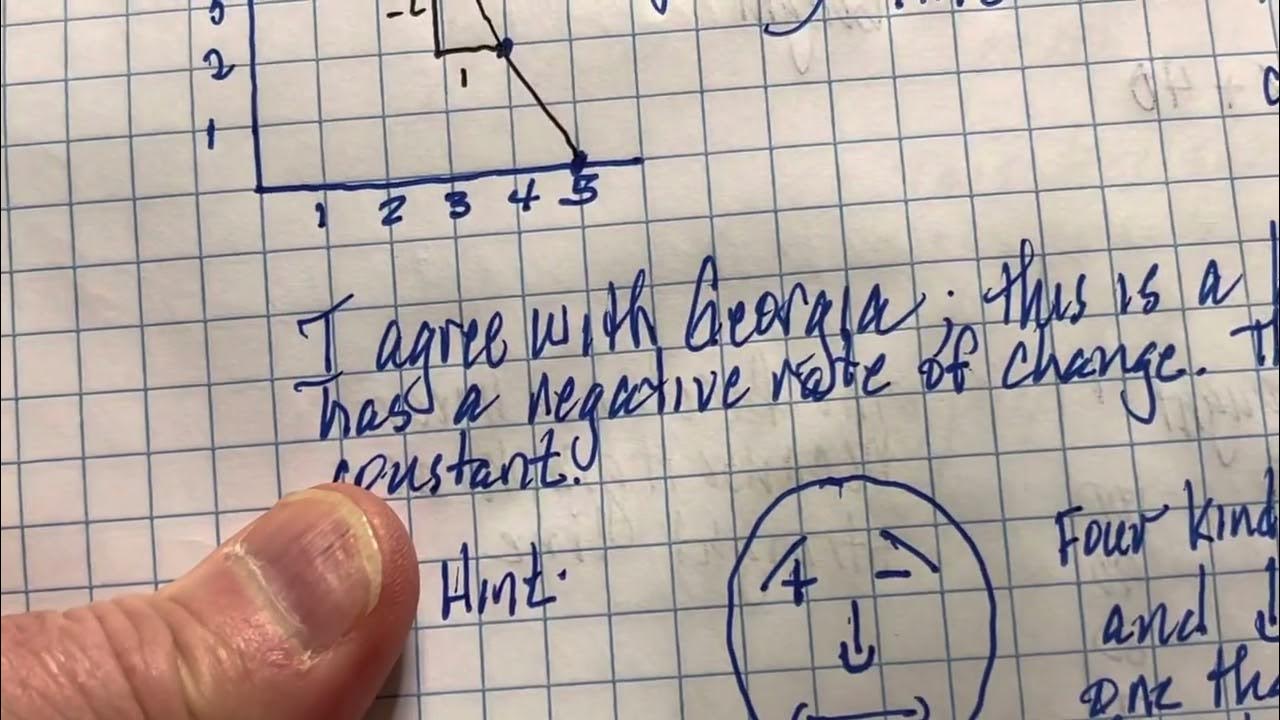 -2
2
1
1
1 2 3 4 5
I agree with Georgia; this is a
has a negative rate of change.
constant.
Hint.
+ -
Four kind
and
one tha